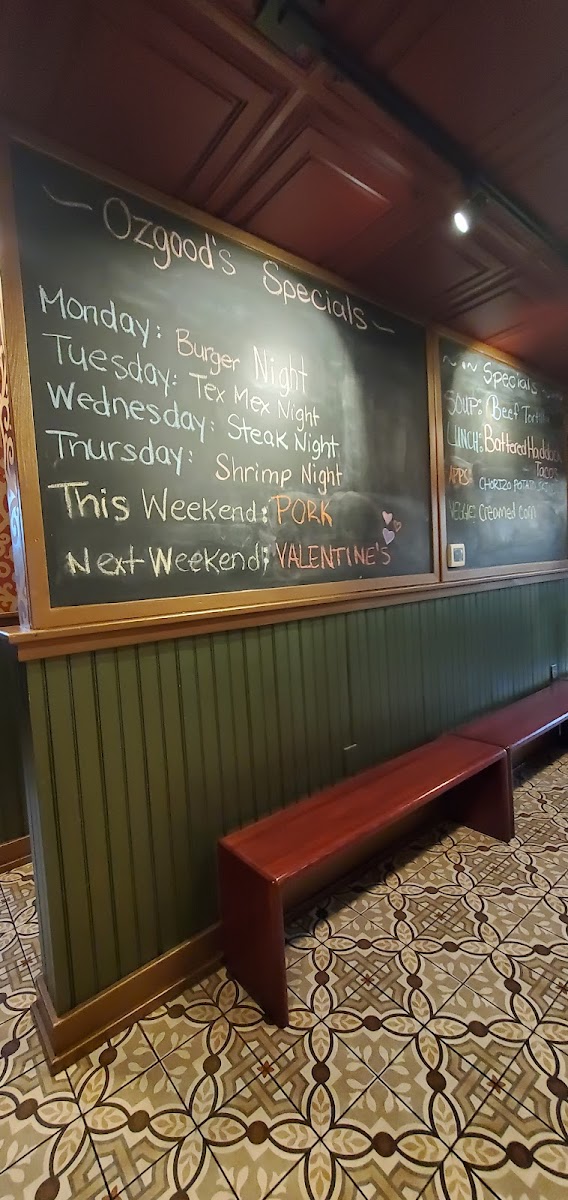 ~ Ozgood's Specials ~
Monday: Burger Night
Tuesday: Tex Mex Night
Wednesday: Steak Night
Thursday: Shrimp Night
This Weekend: PORK
Next Weekend; VALENTINE'S
Specials
SOUP: Beef Tortilla
LUNCH: Battered Haddock
Tacos
APPS: CHORIZO POTATO
VEGGIE: Creamed Corn